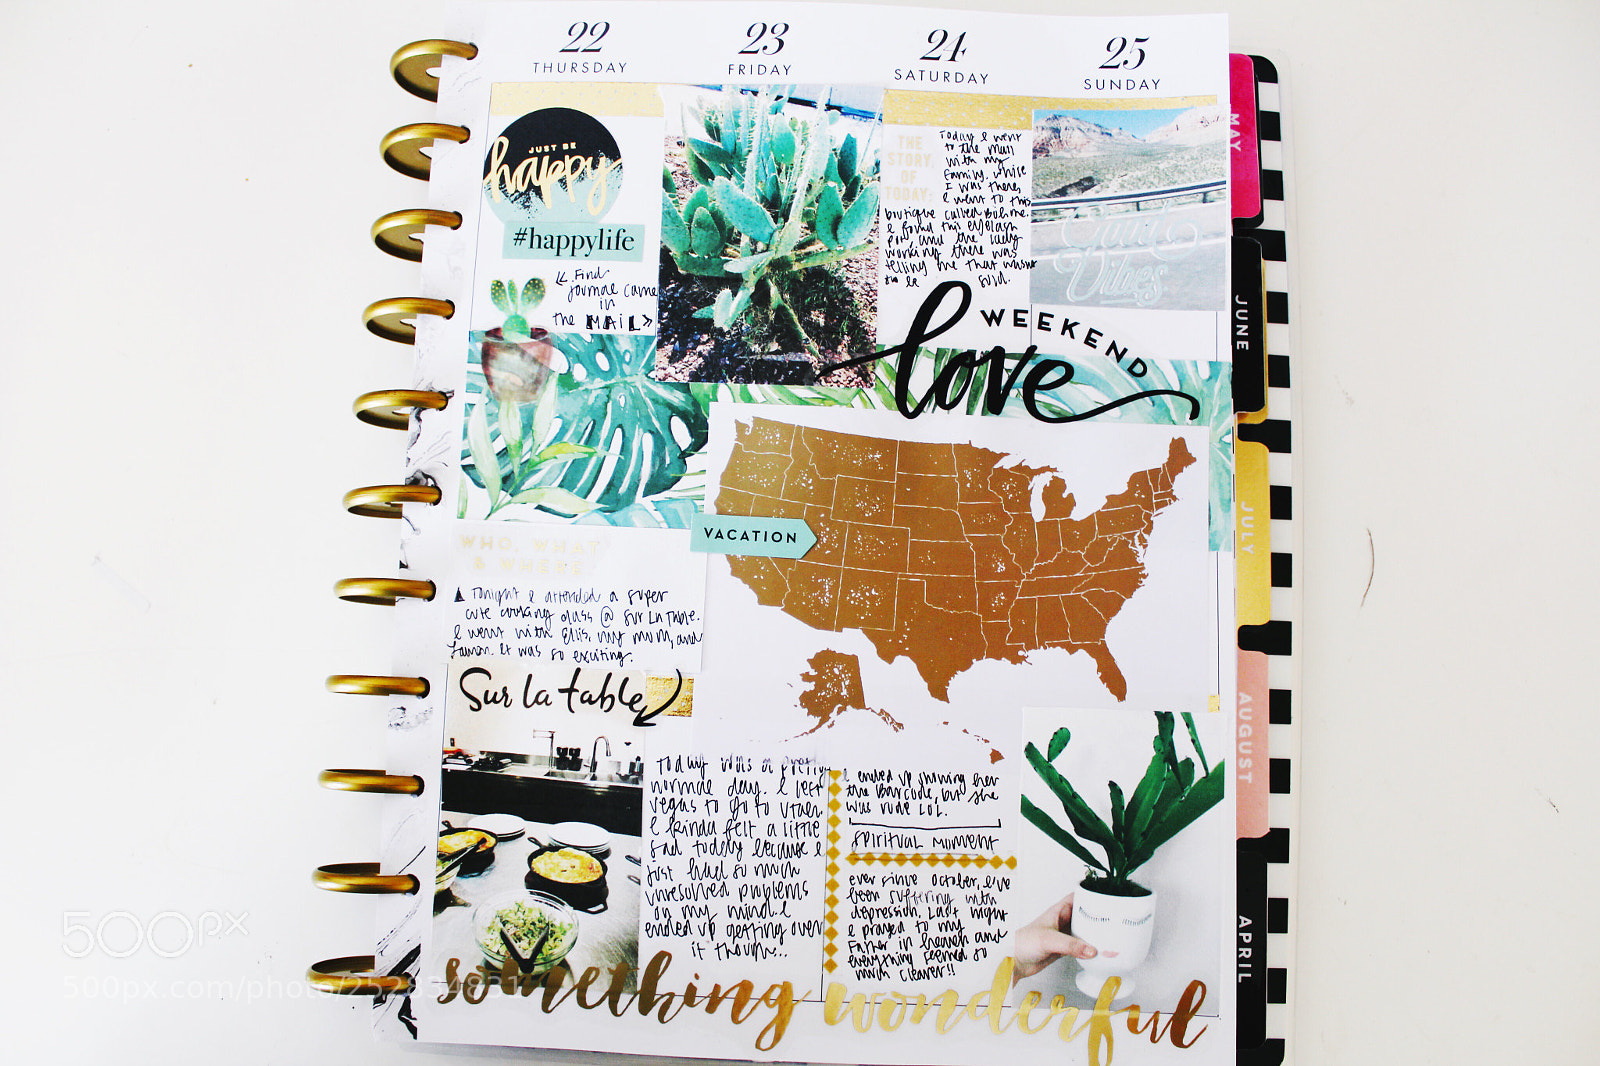 22
THURSDAY
23
FRIDAY
24
SATURDAY
25
SUNDAY
JUST BE
happy
#happylife
Find
journal came
in
the MAIL»
THE
STORY
OF
TODAY:
Today I went
to the mall
with my
family. While
I was there,
I went to this
boutique called Böhme.
I found this eyelash
pot, and the lady
working there was
telling me that wasn't
to be sold.
Good
Vibes
WEEKEND
love
VACATION
WHO, WHAT
& WHERE
Tonight I attended a super
cute cooking class @ Sur La Table.
I went with Ellis, my mom, and
It was so exciting.
Sur la table
Today was a pretty
normal day. I left
Vegas to go to Utah.
I kinda felt a little
sad today because I
just had so much
unresolved problems
on my mind. I
ended up getting over
it though...
I ended up showing her
the Barcode, but she
was rude LOL.
Spiritual Moment
Ever since October, I've
been suffering with
depression. Last night
I prayed to my
Father in heaven and
everything seemed so
much clearer!!
something wonderful
MAY
JUNE
JULY
AUGUST
APRIL
500px